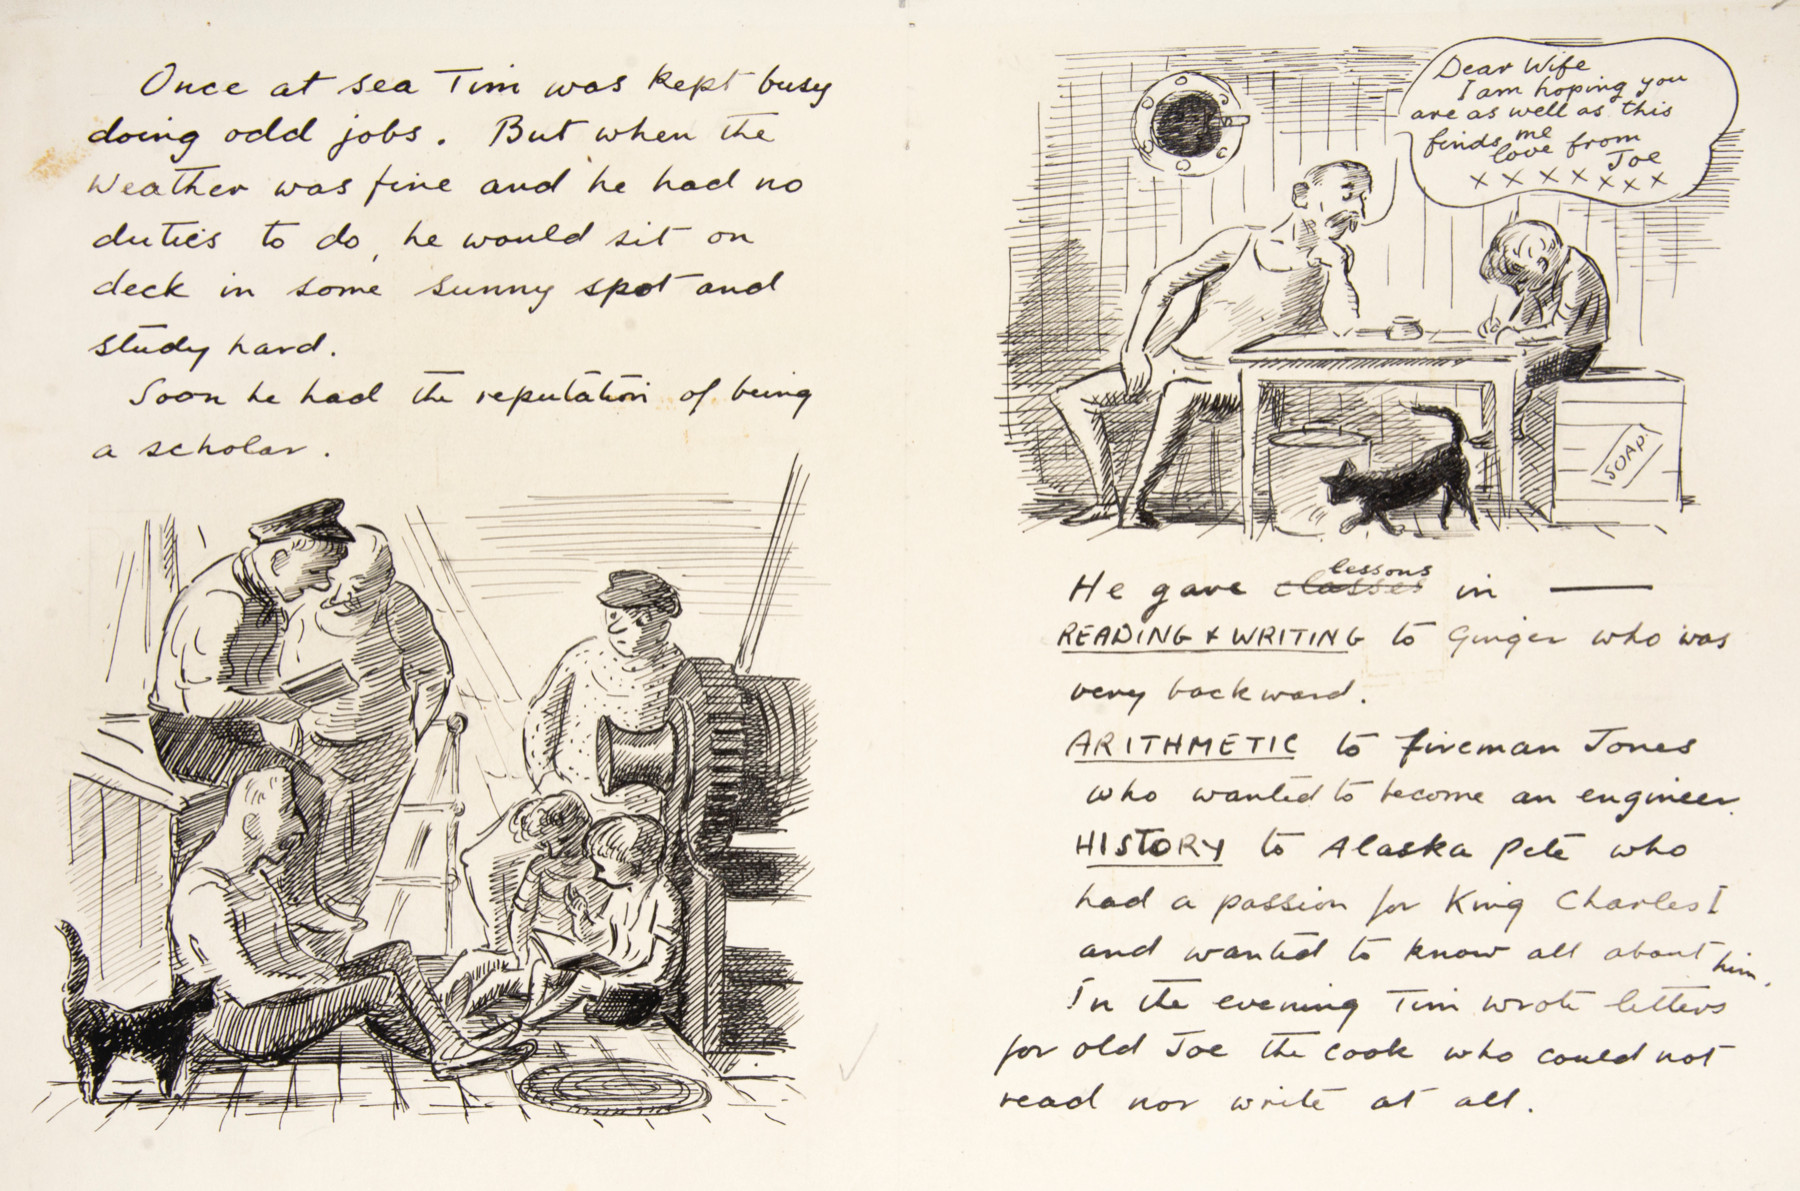 Once at sea Tim was kept busy
doing odd jobs. But when the
weather was fine and he had no
duties to do, he would sit on
deck in some sunny spot and
study hard.
Soon he had the reputation of being
a scholar.
Dear Wife
I am hoping you
are as well as this
finds me
love from
Joe
× × × × × × ×
SOAP.
He gave classes lessons in —
READING & WRITING to Ginger who was
very backward.
ARITHMETIC to fireman Jones
who wanted to become an engineer.
HISTORY to Alaska Pete who
had a passion for King Charles I
and wanted to know all about him.
In the evening Tim wrote letters
for old Joe the cook who could not
read nor write at all.